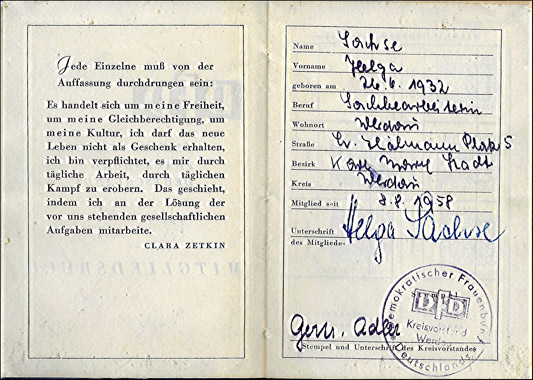 Jede Einzelne muß von der
Auffassung durchdrungen sein:
Es handelt sich um meine Freiheit,
um meine Gleichberechtigung, um
meine Kultur, ich darf das neue
Leben nicht als Geschenk erhalten,
ich bin verpflichtet, es mir durch
tägliche Arbeit, durch täglichen
Kampf zu erobern. Das geschieht,
indem ich an der Lösung der
vor uns stehenden gesellschaftlichen
Aufgaben mitarbeite.
CLARA ZETKIN
Name Sachse
Vorname Helga
geboren am 26.6.1932
Beruf Sachbearbeiterin
Wohnort Werdau
Straße Thälmann Platz 5
Bezirk Karl Marx Stadt
Kreis Werdau
Mitglied seit 8.8.1958
Unterschrift Helga Sachse
des Mitgliedes
Demokratischer Frauenbund Deutschlands
DFD
Kreisvorstand
Werdau
Adler
Stempel und Unterschrift des Kreisvorstandes